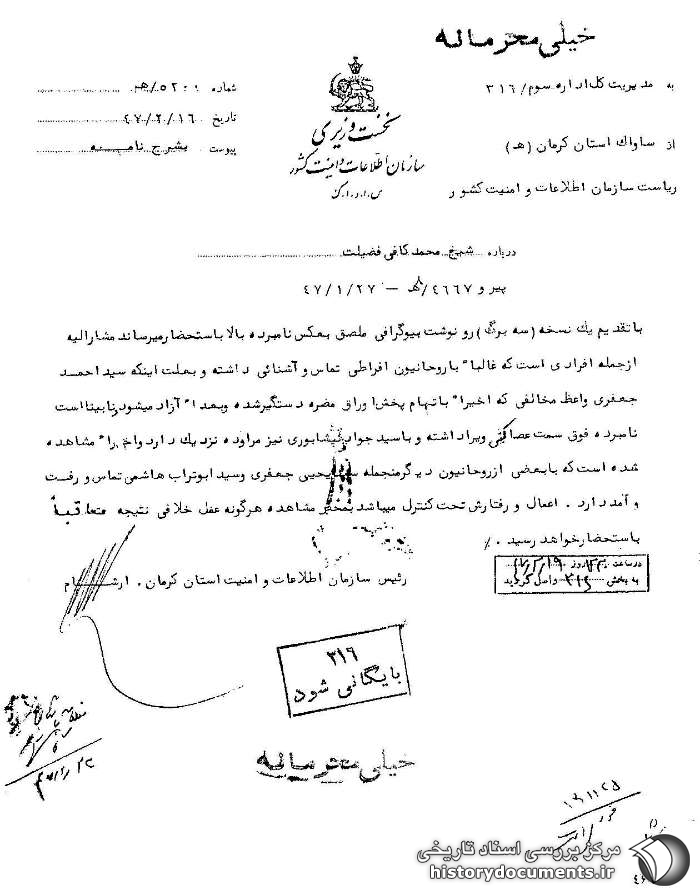 خیلی محرمانه
به مدیریت کل اداره سوم / ۳۱۶
شماره ۵۲۰۱/هـ
از ساواک استان کرمان (هـ)
تاریخ ۴۷/۲/۱۶
پیوست بشرح نامه
نخست وزیری
سازمان اطلاعات و امنیت کشور
س.ا.و.ا.ک
ریاست سازمان اطلاعات و امنیت کشور
درباره شیخ محمد کافی فضیلت
پیرو ۴۶۶۷/هـ - ۴۷/۱/۲۷
با تقدیم یک نسخه (سه برگ) رونوشت بیوگرافی ملصق بعکس نامبرده بالا باستحضار میرساند مشارالیه
ازجمله افرادی است که غالبا" با روحانیون افراطی تماس و آشنائی داشته و بعلت اینکه سید احمد
جعفری واعظ مخالفی که اخیرا" باتهام پخش اوراق مضره دستگیر شده و بعدا" آزاد میشود نابینا است
نامبرده فوق سمت عصاکشی ویرا داشته و با سید جواد نیشابوری نیز مراوده نزدیک دارد و اخیرا" مشاهده
شده است که با بعضی از روحانیون دیگر منجمله یحیی جعفری و سید ابوتراب هاشمی تماس و رفت
و آمد دارد . اعمال و رفتارش تحت کنترل میباشد بمحض مشاهده هرگونه عمل خلافی نتیجه متعاقباً
باستحضار خواهد رسید . ٪
رئیس سازمان اطلاعات و امنیت استان کرمان . آرشام
در ساعت روز
به بخش ۳۱۶ واصل گردید
۳۱۶
بایگانی شود
خیلی محرمانه
مرکز بررسی اسناد تاریخی
historydocuments.ir